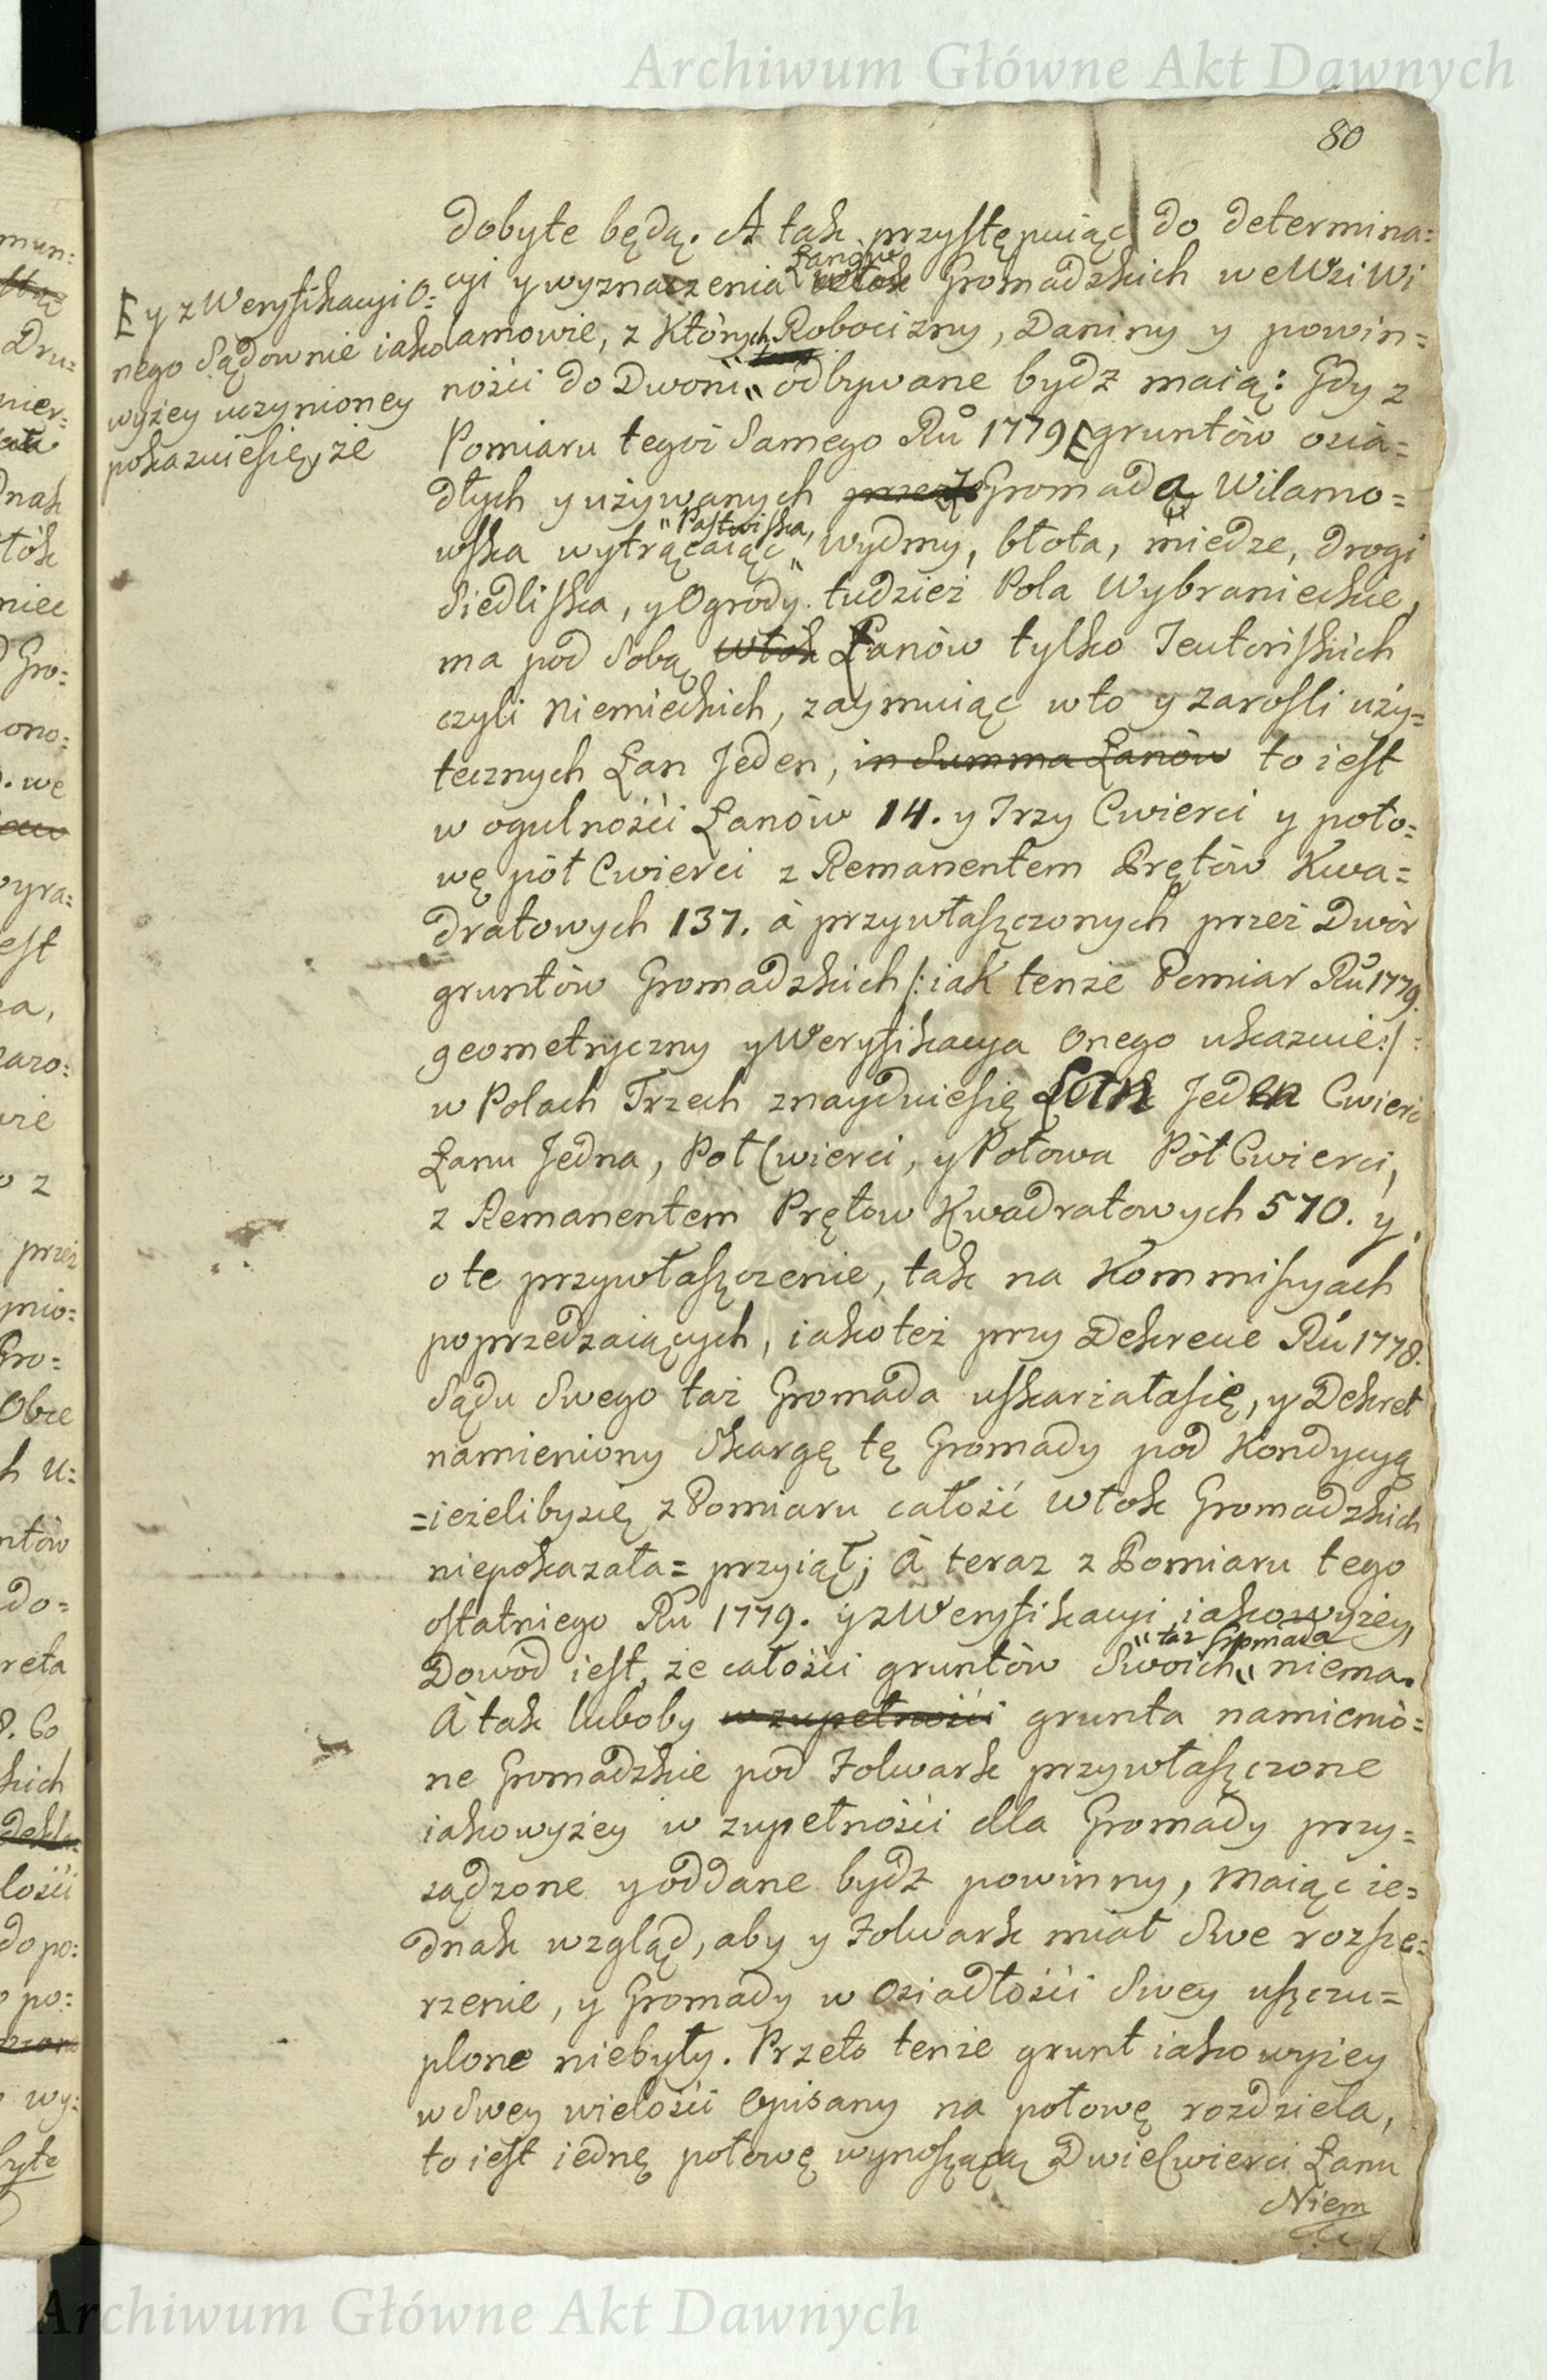 Archiwum Główne Akt Dawnych
80
dobyte będą. A tak przystępuiąc do determina=
cyi y wyznaczenia Łanów Gromadzkich we Wsi Wi
lamowie, z Których Robocizny, Daniny y powin=
ności do Dworu odbywane bydz maią: Gdy z
Pomiaru tegoż Samego Ru 1779 [gruntów osia=
dłych y używanych przez Gromada Wilamo=
wska wytrącaiąc "Pastwiska," wydmy, błota, miedze, drogi
Siedliska, y Ogrody tudzież Pola Wybranieckie,
ma pod Sobą Włók Łanów tylko Teutońskich
czyli Niemieckich, zaymuiąc w to y zarosli uży=
tecznych Łan Jeden, in Summa Łanów to iest
w ogulności Łanów 14. y Trzy Cwierci y poło=
wę pół Cwierci z Remanentem Prętów Kwa=
dratowych 137. à przywłaszczonych przez Dwór
gruntów Gromadzkich /: iak tenże Pomiar Ru 1779.
geometryczny y Weryfikacya Onego ukazuie :/
w Polach Trzech znayduiesię Łan Jeden Cwierć
Łanu Jedna, Poł Cwierci, y Połowa Pół Cwierci,
z Remanentem Prętow Kwadratowych 570. y
o te przywłaszczenie, tak na Kommissyach
poprzedzaiących, iako też przy Dekrecie Ru 1778.
Sądu Swego taż Gromada uskarżałasię, y Dekret
namieniony Skargę tę Gromady pod Kondycyą
=ieżelibysię z Pomiaru całość Włok Gromadzkich
niepokazała= przyiął; à teraz z Pomiaru tego
ostatniego Ru 1779. y z Weryfikacyi iakowyżey,
Dowód iest, że całości gruntów Swoich "taż Gromada" niema.
à tak luboby w zupełności grunta namienio=
ne Gromadzkie pod Folwark przywłaszczone
iakowyżey w zupełności dla Gromady przy=
sądzone y oddane bydź powinny, Maiąc ie=
dnak wzgląd, aby y Folwark miał Swe rozsze=
rzenie, y Gromady w Osiadłości Swey uszczu=
plone niebyły. Przeto tenże grunt iakowyżey
w Swey wielości Opisany na połowę rozdziela,
to iest iednę połowę wynoszącą Dwie Cwierci Łanu
Niem
[ y z Weryfikacyi O=
nego Sądownie iako
wyżey uczynioney
pokazuiesię, że
Archiwum Główne Akt Dawnych